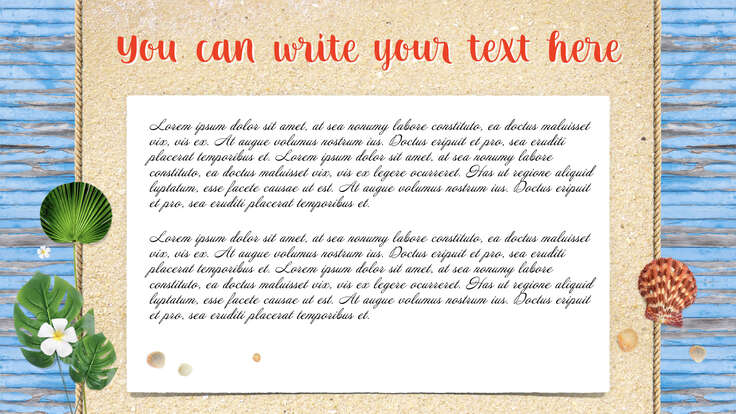 You can write your text here
Lorem ipsum dolor sit amet, at sea nonumy labore constituto, ea doctus maluisset
vix, vis ex. At augue volumus nostrum ius. Doctus eripuit et pro, sea eruditi
placerat temporibus et. Lorem ipsum dolor sit amet, at sea nonumy labore
constituto, ea doctus maluisset vix, vis ex legere ocurreret. Has ut regione aliquid
luptatum, esse facete causae ut est. At augue volumus nostrum ius. Doctus eripuit
et pro, sea eruditi placerat temporibus et.
Lorem ipsum dolor sit amet, at sea nonumy labore constituto, ea doctus maluisset
vix, vis ex. At augue volumus nostrum ius. Doctus eripuit et pro, sea eruditi
placerat temporibus et. Lorem ipsum dolor sit amet, at sea nonumy labore
constituto, ea doctus maluisset vix, vis ex legere ocurreret. Has ut regione aliquid
luptatum, esse facete causae ut est. At augue volumus nostrum ius. Doctus eripuit
et pro, sea eruditi placerat temporibus et.